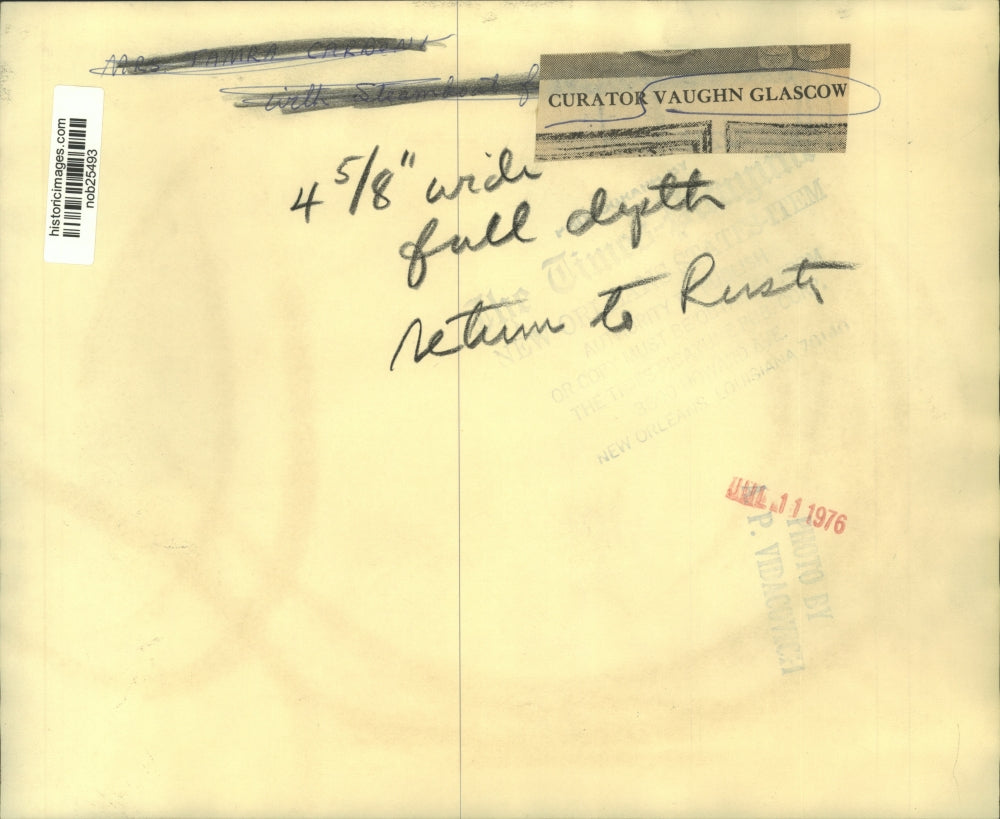 MRS. TAMRA
with Steamboat
CURATOR VAUGHN GLASCOW
historicimages.com
nob25493
4 5/8" wide
full depth
return to Rusty
The Times-Picayune
NEW ORLEANS STATES-ITEM
AUTHORITY
OR COPY MUST BE
THE TIMES-PICAYUNE
3800 HOWARD AVE.
NEW ORLEANS, LOUISIANA 70140
JUL 11 1976
PHOTO BY
P. VIDACOVICH